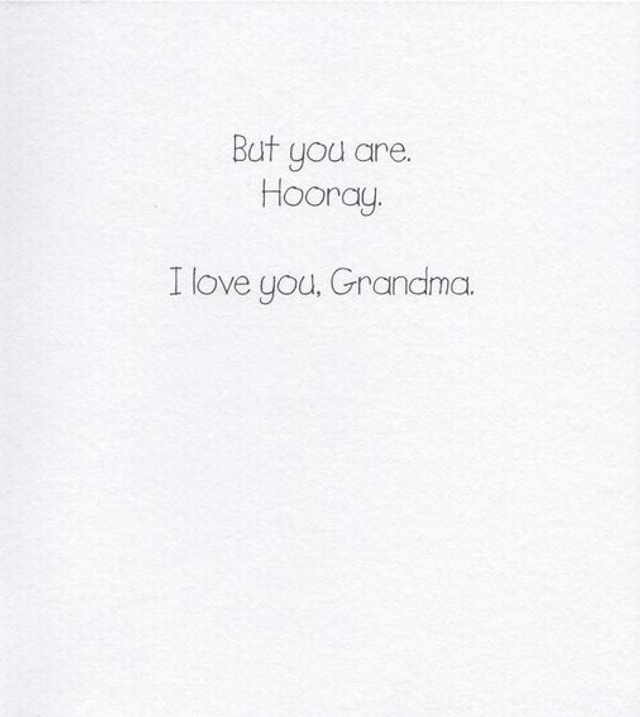 But you are.
Hooray.
I love you, Grandma.